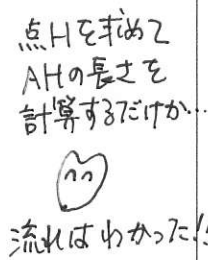 点Hを求めて
AHの長さを
計算するだけか…
流れはわかった!!